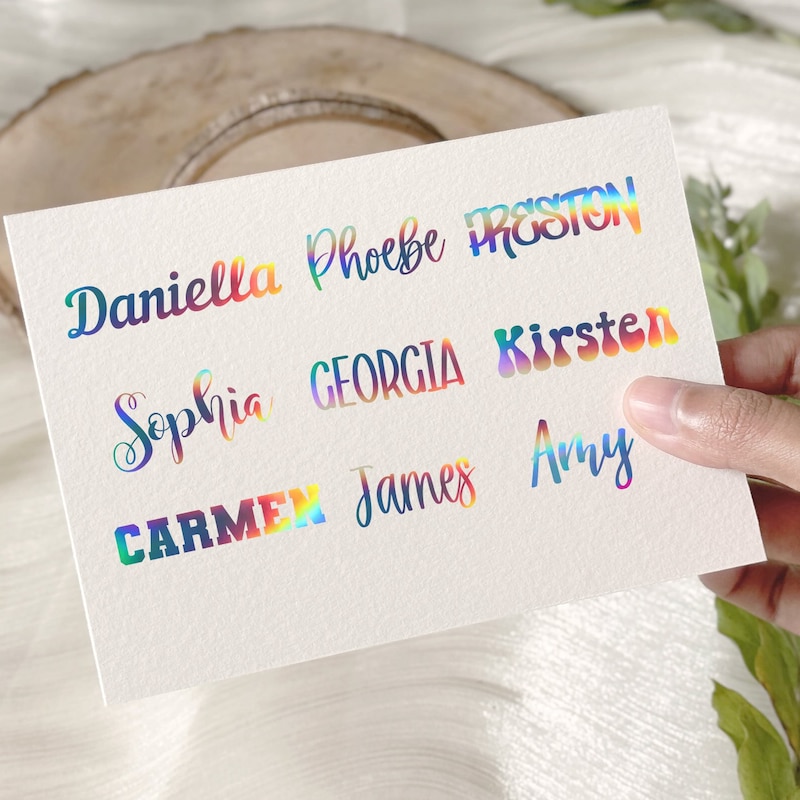 Daniella Phoebe PRESTON
Sophia GEORGIA Kirsten
CARMEN James Amy